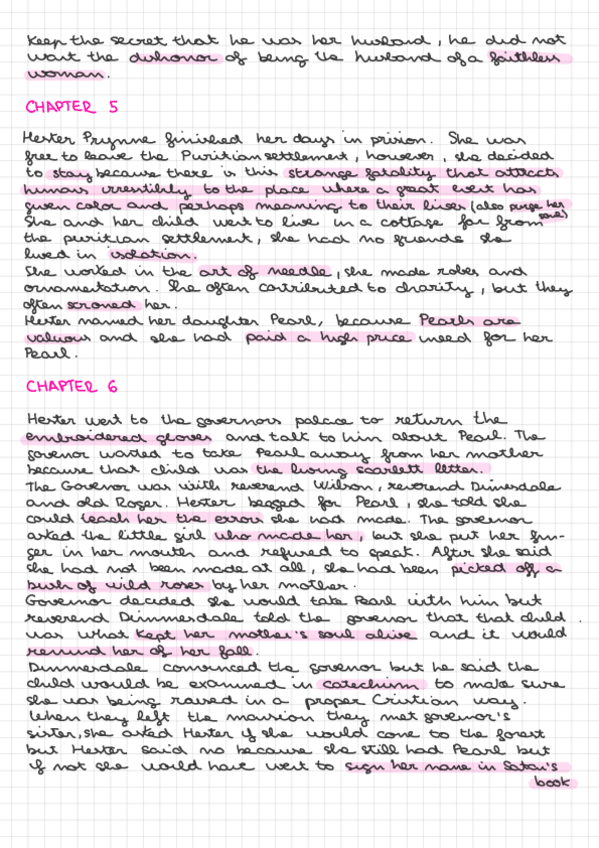 Keep the secret that he was her husband, he did not
want the dishonor of being the husband of a faithless
woman.
CHAPTER 5
Hester Prynne finished her days in prision. She was
free to leave the Puritian settlement, however, she decided
to stay because there is this strange fatality that attracts
humans irresitibly to the place where a great event has
given color and perhaps meaning to their lives (also purge her
She and her child went to live in a cottage far from soul)
the puritian settlement, she had no friends she
lived in isolation.
She worked in the art of needle, she made robes and
ornamentation. She often contributed to charity, but they
often scroned her.
Hester named her daughter Pearl, because Pearls are
valuous and she had paid a high price need for her
Pearl.
CHAPTER 6
Hester went to the governors palace to return the
embroidered gloves and talk to him about Pearl. The
govenor wanted to take Pearl away from her mother
because that child was the living scarlett letter.
The Govenor was with reverend Wilson, reverend Dimerdale
and old Roger. Hester begged for Pearl, she told she
could teach her the errors she had made. The governor
asked the little girl who made her, but she put her fin-
ger in her mouth and refused to speak. After she said
she had not been made at all, she had been picked off a
bush of wild roses by her mother.
Governor decided she would take Pearl with him but
reverend Dimmesdale told the govenor that that child
was what kept her mother's soul alive and it would
remind her of her fall.
Dimmerdale convinced the govenor but he said the
child would be examined in catechism to make sure
she was being raised in a proper Cristian way.
When they left the mansion they met governor's
sister, she asked Hester if she would come to the forest
but Hester said no because she still had Pearl but
if not she would have went to sign her name in Satan's
book